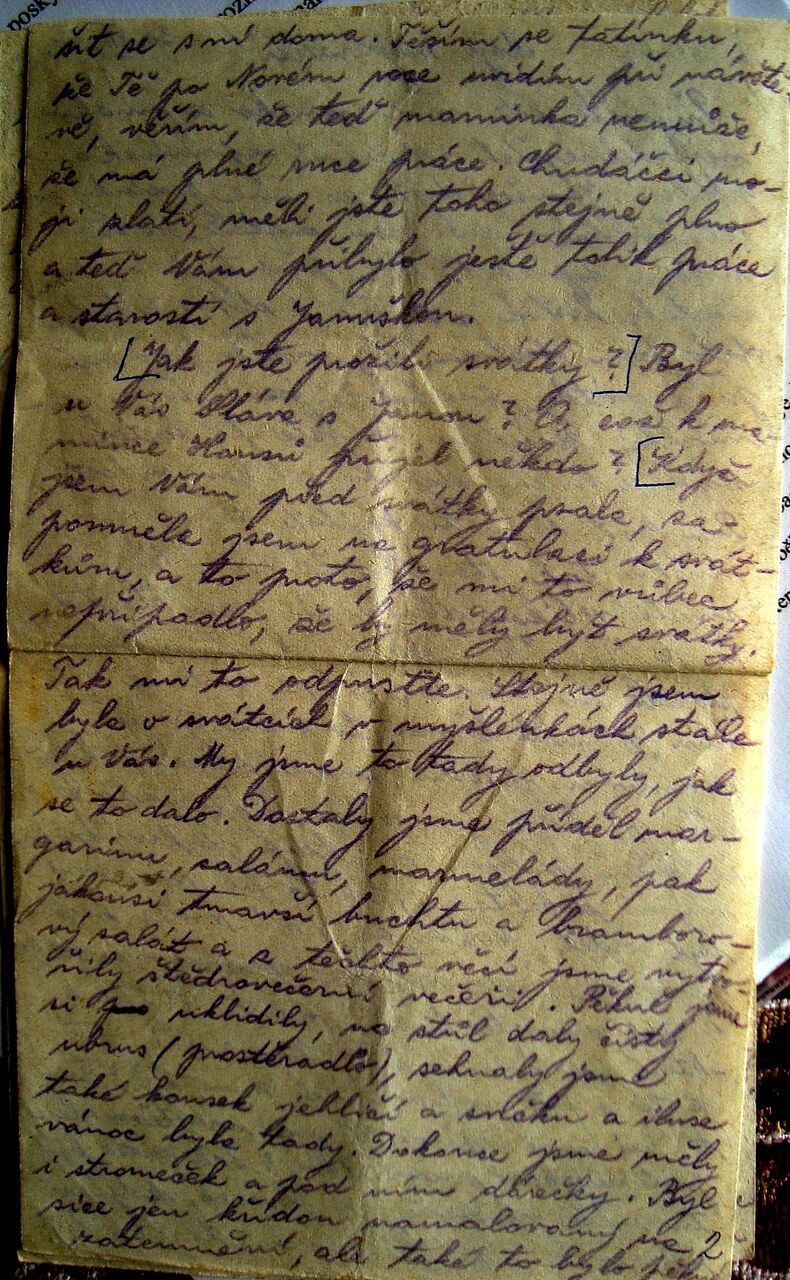 žit se s ní doma. Těším se tatínku,
že Tě po Novém roce uvidím při návště-
vě, věřím, že teď maminka nemůže,
že má plné ruce práce. Chudáčci mo-
ji zlatí, měli jste toho stejně plno
a teď Vám přibylo ještě tolik práce
a starostí s Januškou.
[Jak jste prožili svátky?] Byl
u Vás Sláva s Jenou? A, což k ma-
mince Hausů přijel někdo? [Když
jsem Vám před svátky psala, za-
pomněla jsem na gratulaci k svát-
kům, a to proto, že mi to vůbec
nepřipadlo, že by měly být svátky.
Tak mi to odpusťte. Stejně jsem
byla o svátcích v myšlenkách stále
u Vás. My jsme to tady odbyly, jak
se to dalo. Dostaly jsme příděl mar-
garinu, salámu, marmelády, pak
jakousi tmavší buchtu a bramboro-
vý salát a z těchto věcí jsme vytvo-
řily štědrovečerní večeři. Pěkně jsme
si uklidily, na stůl daly čistý
ubrus (prostěradlo), sehnaly jsme
také kousek jehličí a svíčku a iluse
vánoc byla tady. Dokonce jsme měly
i stromeček a pod ním dárečky. Byl
sice jen křídou namalovaný na
zatemnění, ale také to bylo
2